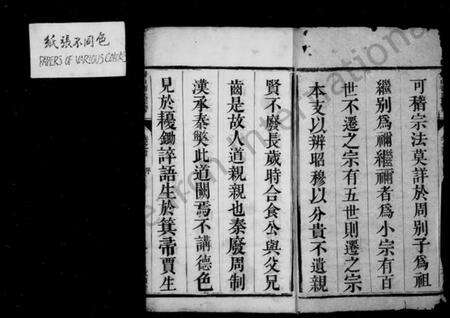 紙張不同色
PAPERS OF VARIOUS COLORS
可稽宗法莫詳於周別子爲祖
繼別爲禰繼禰者爲小宗有百
世不遷之宗有五世則遷之宗
本支以辨昭穆以分貴不遺親
賢不廢長歲時合食公與父兄
齒是故人道親親也秦廢周制
漢承秦獘此道闕焉不講德色
見於耰鋤誶語生於箕帚賈生